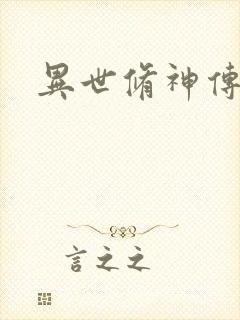 異世脩神傳
言之之